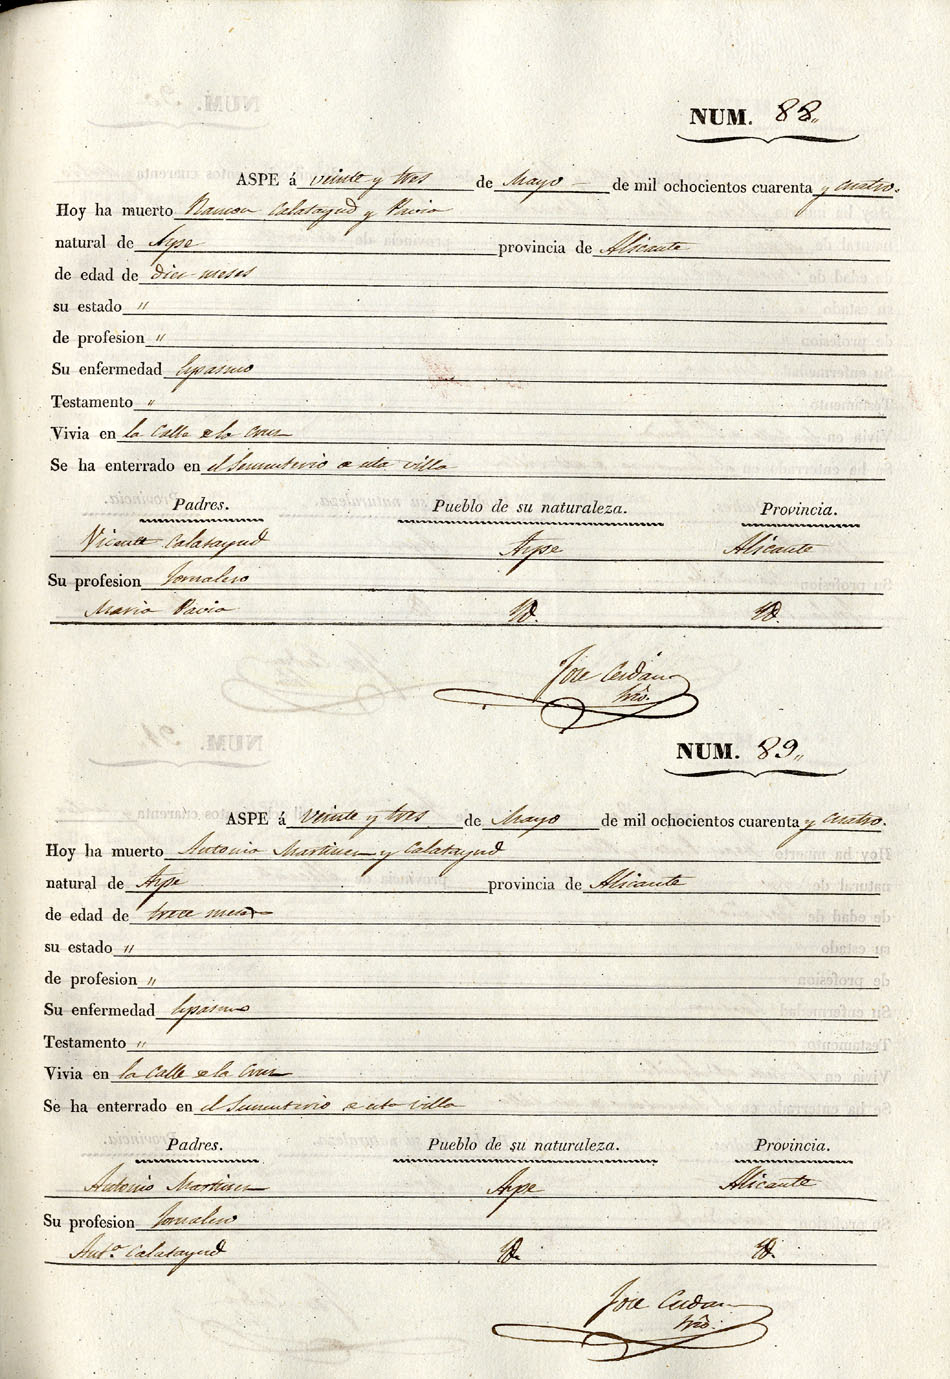 NUM. 88„
ASPE á veinte y tres de Mayo de mil ochocientos cuarenta y cuatro.
Hoy ha muerto Ramon Calatayud y Pavia
natural de Aspe provincia de Alicante
de edad de diez meses
su estado „
de profesion „
Su enfermedad Espasmo
Testamento „
Vivia en la Calle de la Cruz
Se ha enterrado en el Sementerio de esta villa
Padres. Pueblo de su naturaleza. Provincia.
Vicente Calatayud Aspe Alicante
Su profesion Jornalero
Maria Pavia Yd. Yd.
Jose Cerdan
NUM. 89„
ASPE á veinte y tres de Mayo de mil ochocientos cuarenta y cuatro.
Hoy ha muerto Antonio Martinez y Calatayud
natural de Aspe provincia de Alicante
de edad de trece meses
su estado „
de profesion „
Su enfermedad Espasmo
Testamento „
Vivia en la Calle de la Cruz
Se ha enterrado en el Sementerio de esta villa
Padres. Pueblo de su naturaleza. Provincia.
Antonio Martinez Aspe Alicante
Su profesion Jornalero
Antª Calatayud Yd. Yd.
Jose Cerdan